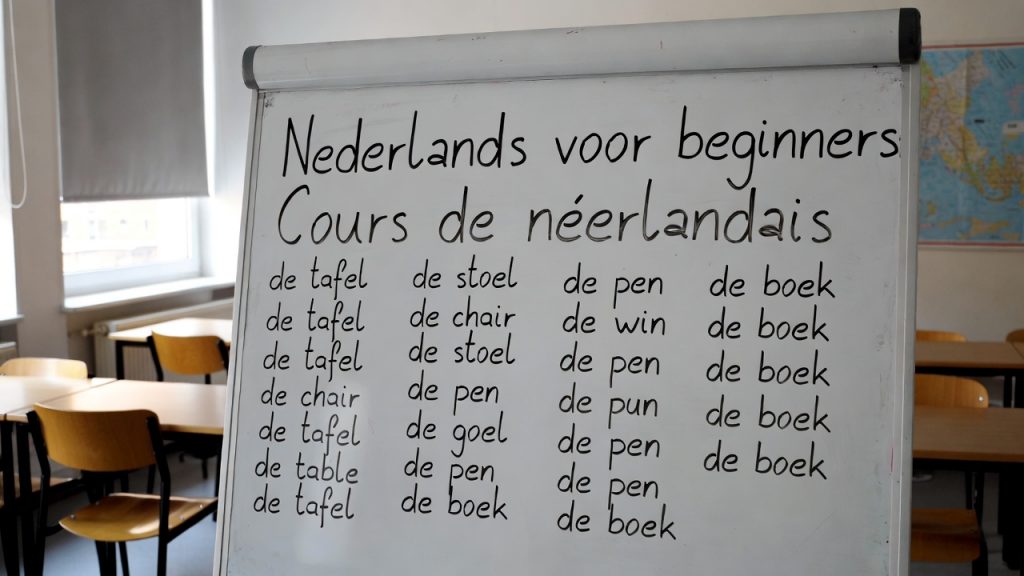 Nederlands voor beginners
Cours de néerlandais
de tafel
de tafel
de tafel
de chair
de tafel
de table
de tafel
de stoel
de chair
de stoel
de pen
de goel
de pen
de boek
de pen
de win
de pen
de pun
de pen
de pen
de boek
de boek
de boek
de boek
de boek
de boek